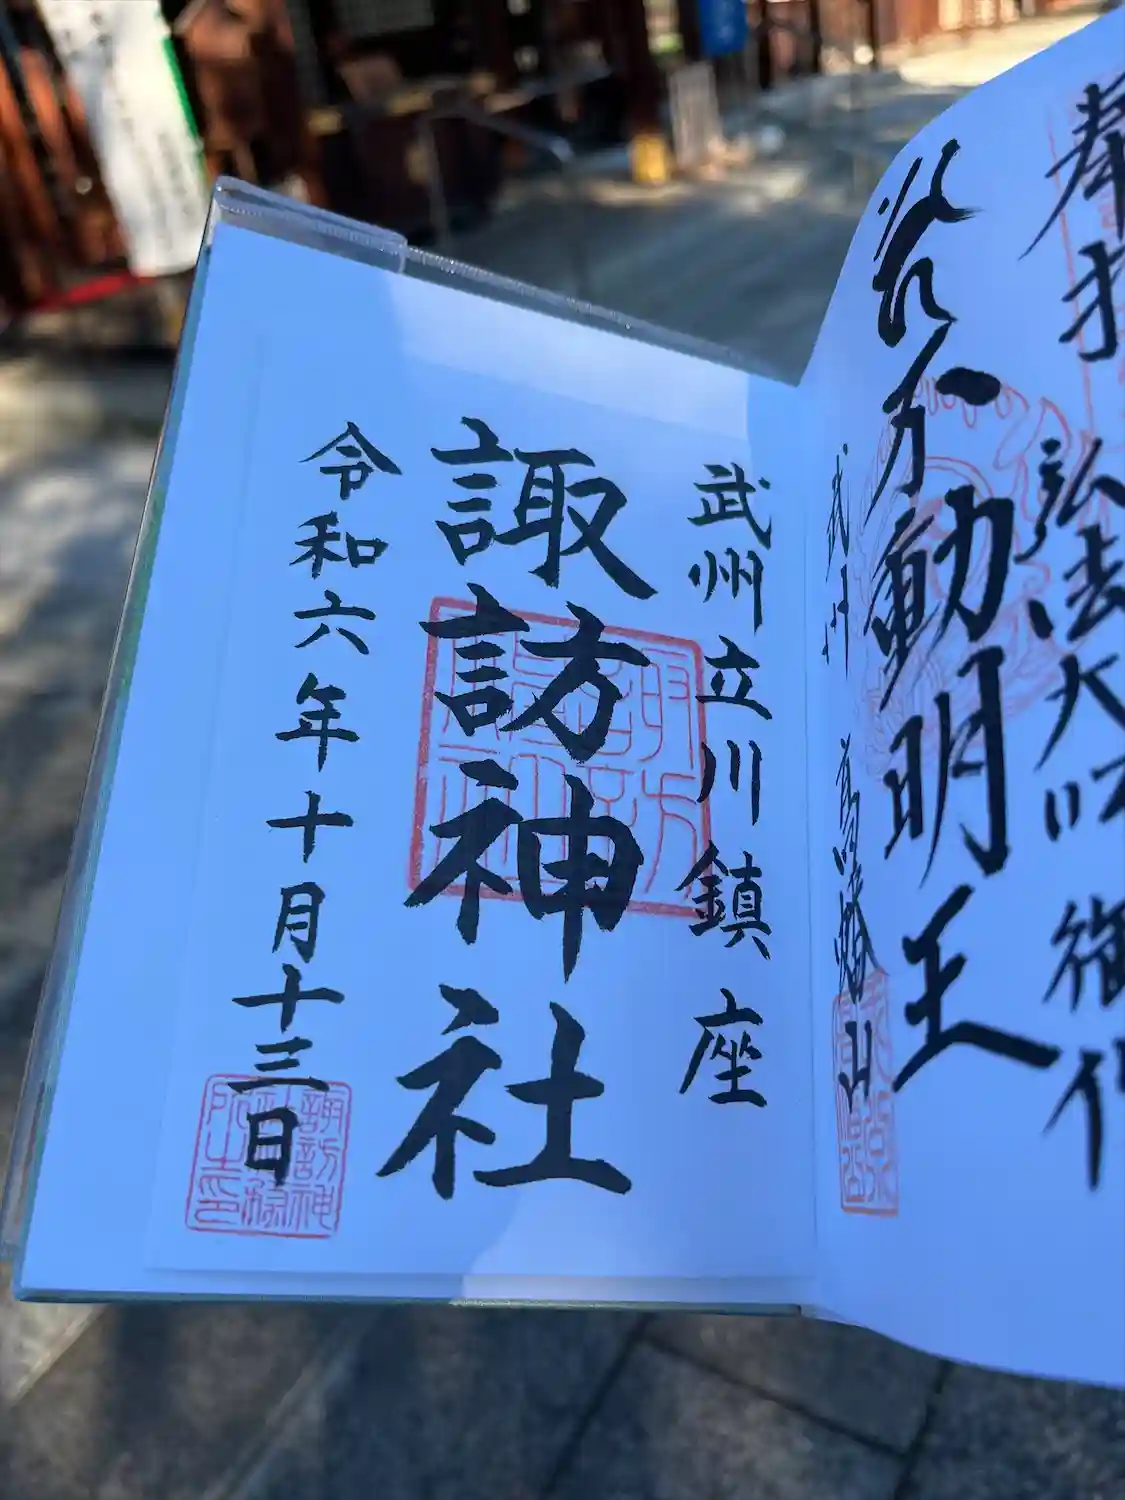 奉拝
弘法大師
不動明王
武州
高幡山
武州立川鎮座
諏訪神社
令和六年十月十三日
諏訪神